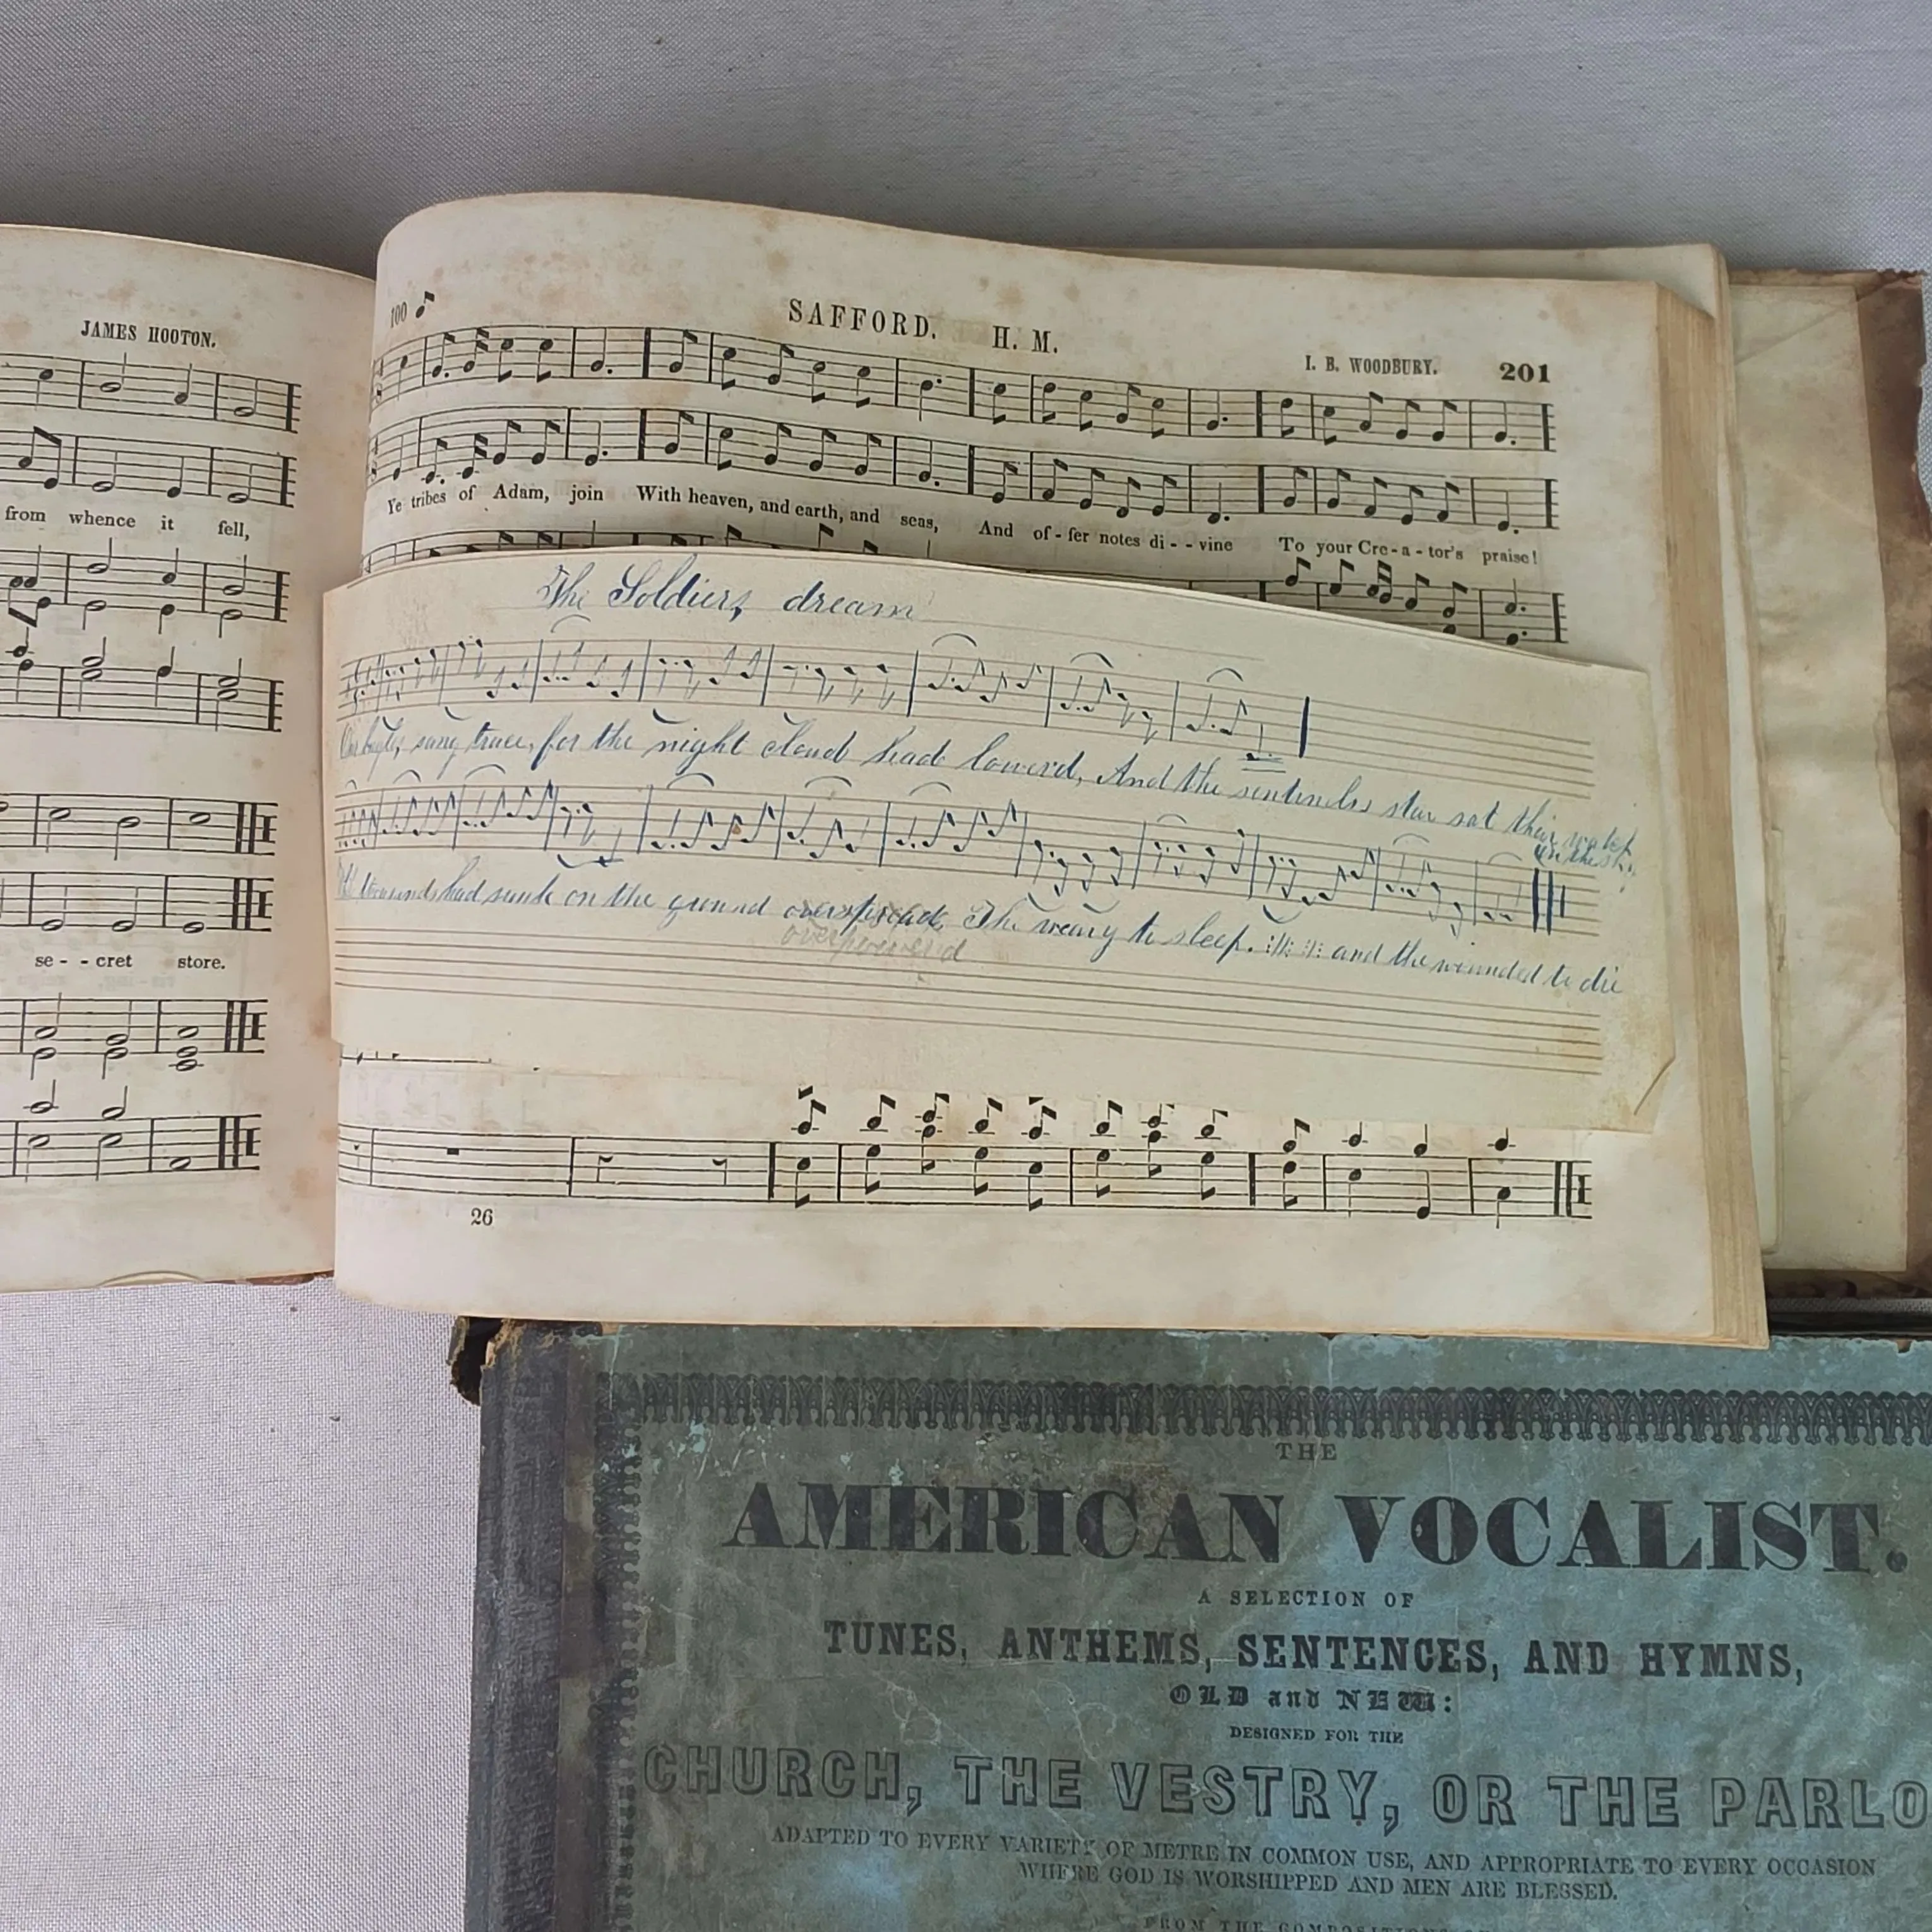 JAMES HOOTON.
from whence it fell,
se - - cret store.
100
SAFFORD. H. M.
I. B. WOODBURY. 201
Ye tribes of Adam, join With heaven, and earth, and seas, And of - fer notes di - - vine To your Cre - a - tor's praise!
The Soldiers dream
Our bugles sang truce, for the night cloud had lowerd, And the sentinels star sat their watch
in the sky
had sunk on the ground overpowerd The weary to sleep. and the wounded to die
overpowerd
26
THE
AMERICAN VOCALIST.
A SELECTION OF
TUNES, ANTHEMS, SENTENCES, AND HYMNS,
OLD and NEW:
DESIGNED FOR THE
CHURCH, THE VESTRY, OR THE PARLO
ADAPTED TO EVERY VARIETY OF METRE IN COMMON USE, AND APPROPRIATE TO EVERY OCCASION
WHERE GOD IS WORSHIPPED AND MEN ARE BLESSED.
FROM THE COMPOSITIONS